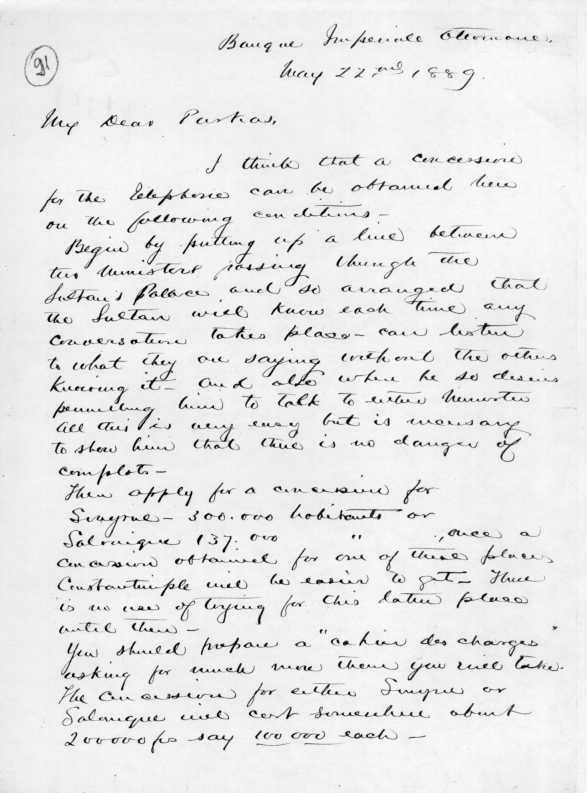 Banque Imperiale Ottomane.
91
May 22nd 1889.
My Dear
I think that a concession
for the Telephone can be obtained here
on the following conditions -
Begin by putting up a line between
two Ministers passing through the
Sultan's Palace and so arranged that
the Sultan will know each time any
conversation takes place - can listen
to what they are saying without the others
knowing it - and also when he so desires
permitting him to talk to either Minister
All this is very easy but is necessary
to show him that there is no danger of
complots -
Then apply for a concession for
Smyrne - 300.000 habitants or
Salonique 137.000 " " , once a
concession obtained for one of these places
Constantinople will be easier to get - There
is no use of trying for this latter place
until then -
You should prepare a "cahier des charges"
asking for much more than you will take.
The concession for either Smyrne or
Salonique will cost somewhere about
200000 fcs say 100 000 each -